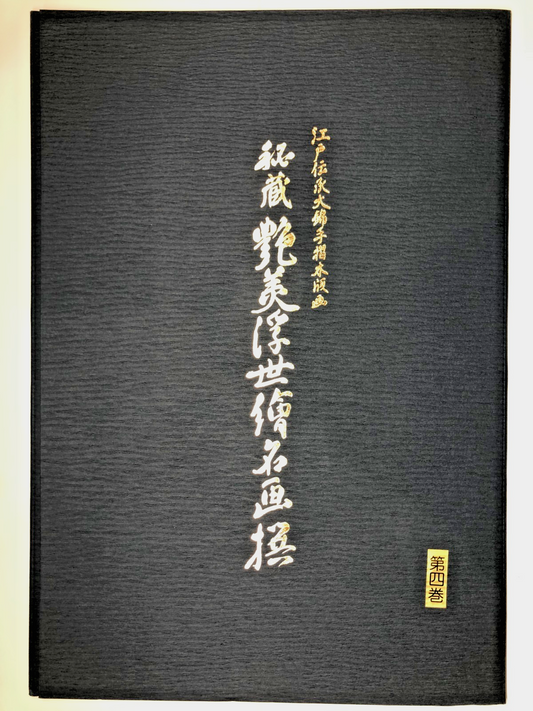 江戸伝承大錦手摺木版画
秘蔵艶美浮世繪名画撰
第四巻